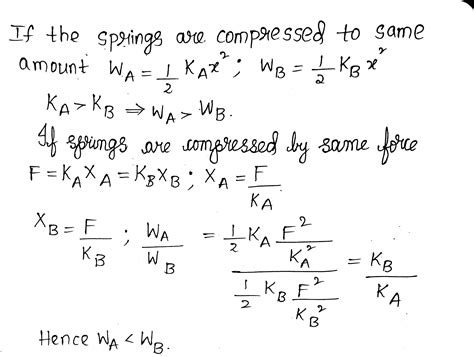 If the springs are compressed to same
amount W_A = 1/2 K_A x^2 ; W_B = 1/2 K_B x^2
K_A > K_B ⇒ W_A > W_B.
If springs are compressed by same force
F = K_A X_A = K_B X_B ; X_A = F/K_A
X_B = F/K_B ; W_A/W_B = (1/2 K_A F^2/K_A^2)/(1/2 K_B F^2/K_B^2) = K_B/K_A
Hence W_A < W_B.